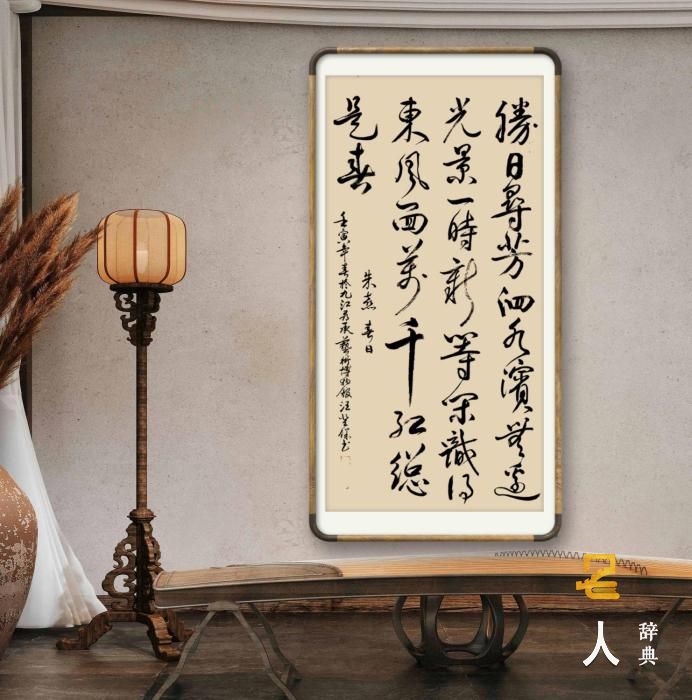 勝日尋芳泗水濱無邊
光景一時新等閑識得
東風面萬千紅總
是春
朱熹 春日
壬寅年春於九江承藝術博物館汪書
名人
辞典